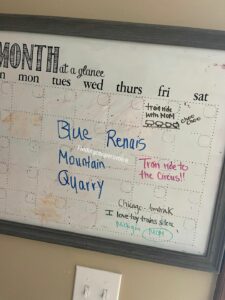 MONTH at a glance
mon tues wed thurs fri sat
train ride
with MOM
choo
choo
Blue Renais
Mountain
Quarry
Train ride to
the Circus!!
Chicago - Amtrak
I love toy trains
Michigan MOM